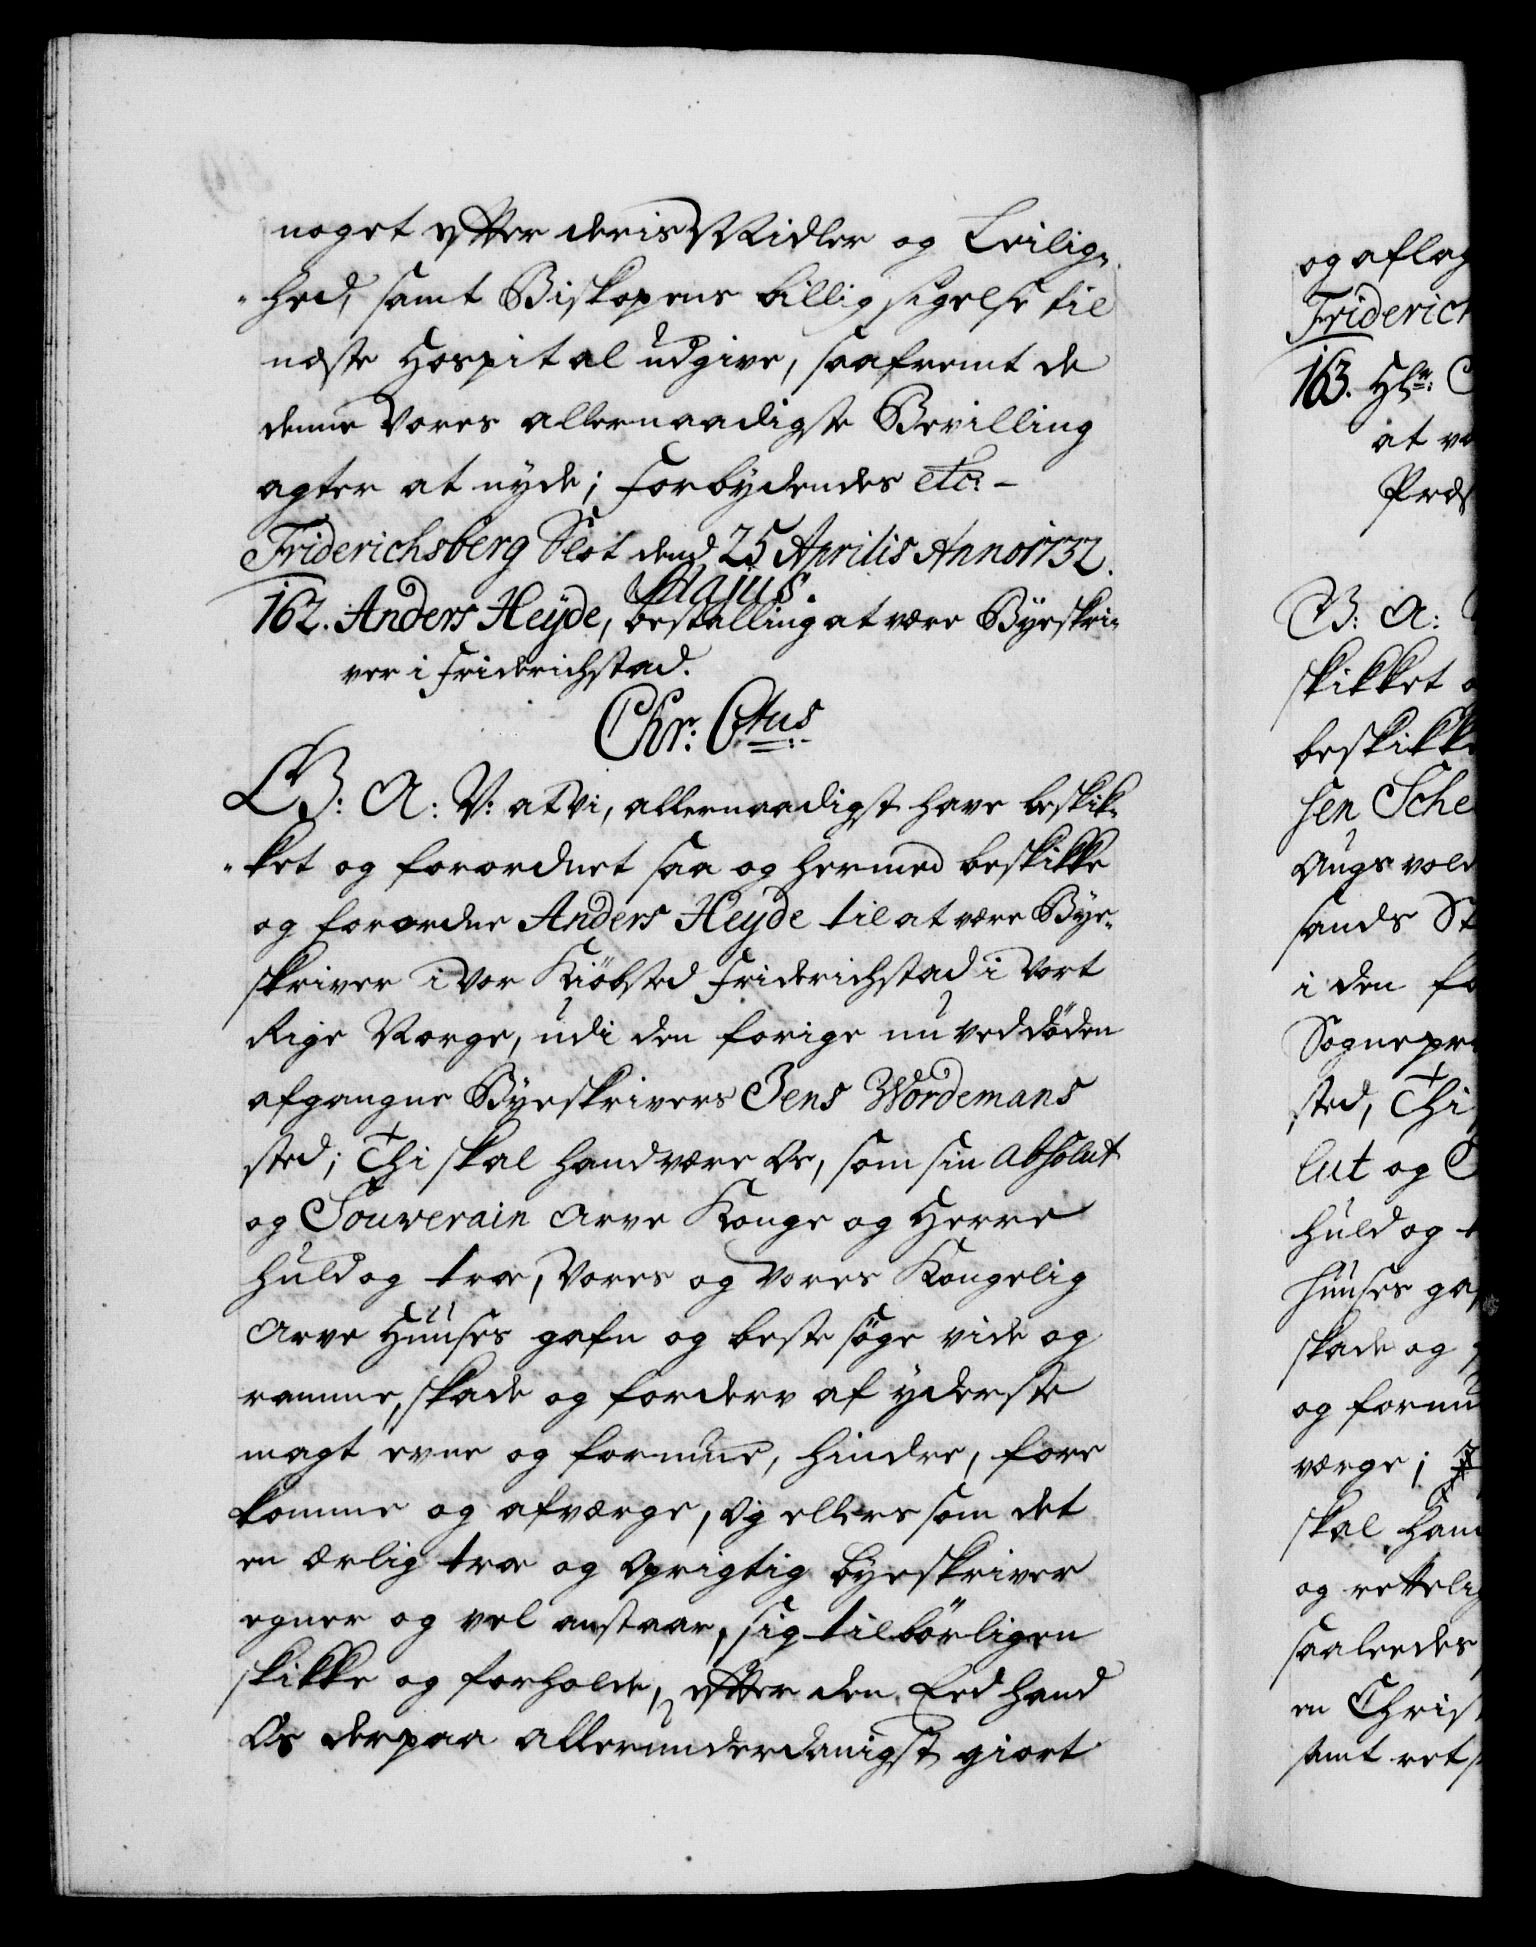 noget efter deris Midler og Leilig-
hed, samt Biskopens billig sigelse til
næste Hospital udgive, saafremt de
denne Vores allernaadigste Bevilling
agter at nyde; Forbydendes etc: -
Friderichsberg Slot dend 25 Aprilis Anno 1732.
Majus.
162. Anders Heyde, bestalling at være Byeskri-
ver i Friderichstad.
Chr: 6tus
G: A: V: at Vi, allernaadigst have beskik-
ket og forordnet saa og hermed beskikke
og forordne Anders Heyde til at være Bye-
skriver i Vor Kiöbsted Friderichstad i Vort
Rige Norge, udi den forige nu ved döden
afgangne Byeskrivers Jens Wordemans
sted; Thi skal hand være Os, som sin absolut
og Souverain Arve Konge og Herre
huld og troe, Vores og Vores Kongelig
Arve Huuses gafn og beste söge vide og
ramme, skade og forderv af yderste
magt evne og formue, hindre, fore
komme og afværge, Og ellers som det
en ærlig troe og Oprigtig byeskriver
egner og vel anstaar, sig tilbörligen
skikke og forholde, efter den Eed hand
Os derpaa allerunderdanigst giort
og aflag
Friderich
163. Hr:
at væ
Præs
G: A:
skikket o
beskikke
sen Sche
Augsvold
sands St
i den fo
Sognepræ
sted, Thi
lut og
huld og t
huuses gaf
skade og
og formu
værge;
skal hand
og rettelig
saaleedes
en Christ
samt rets